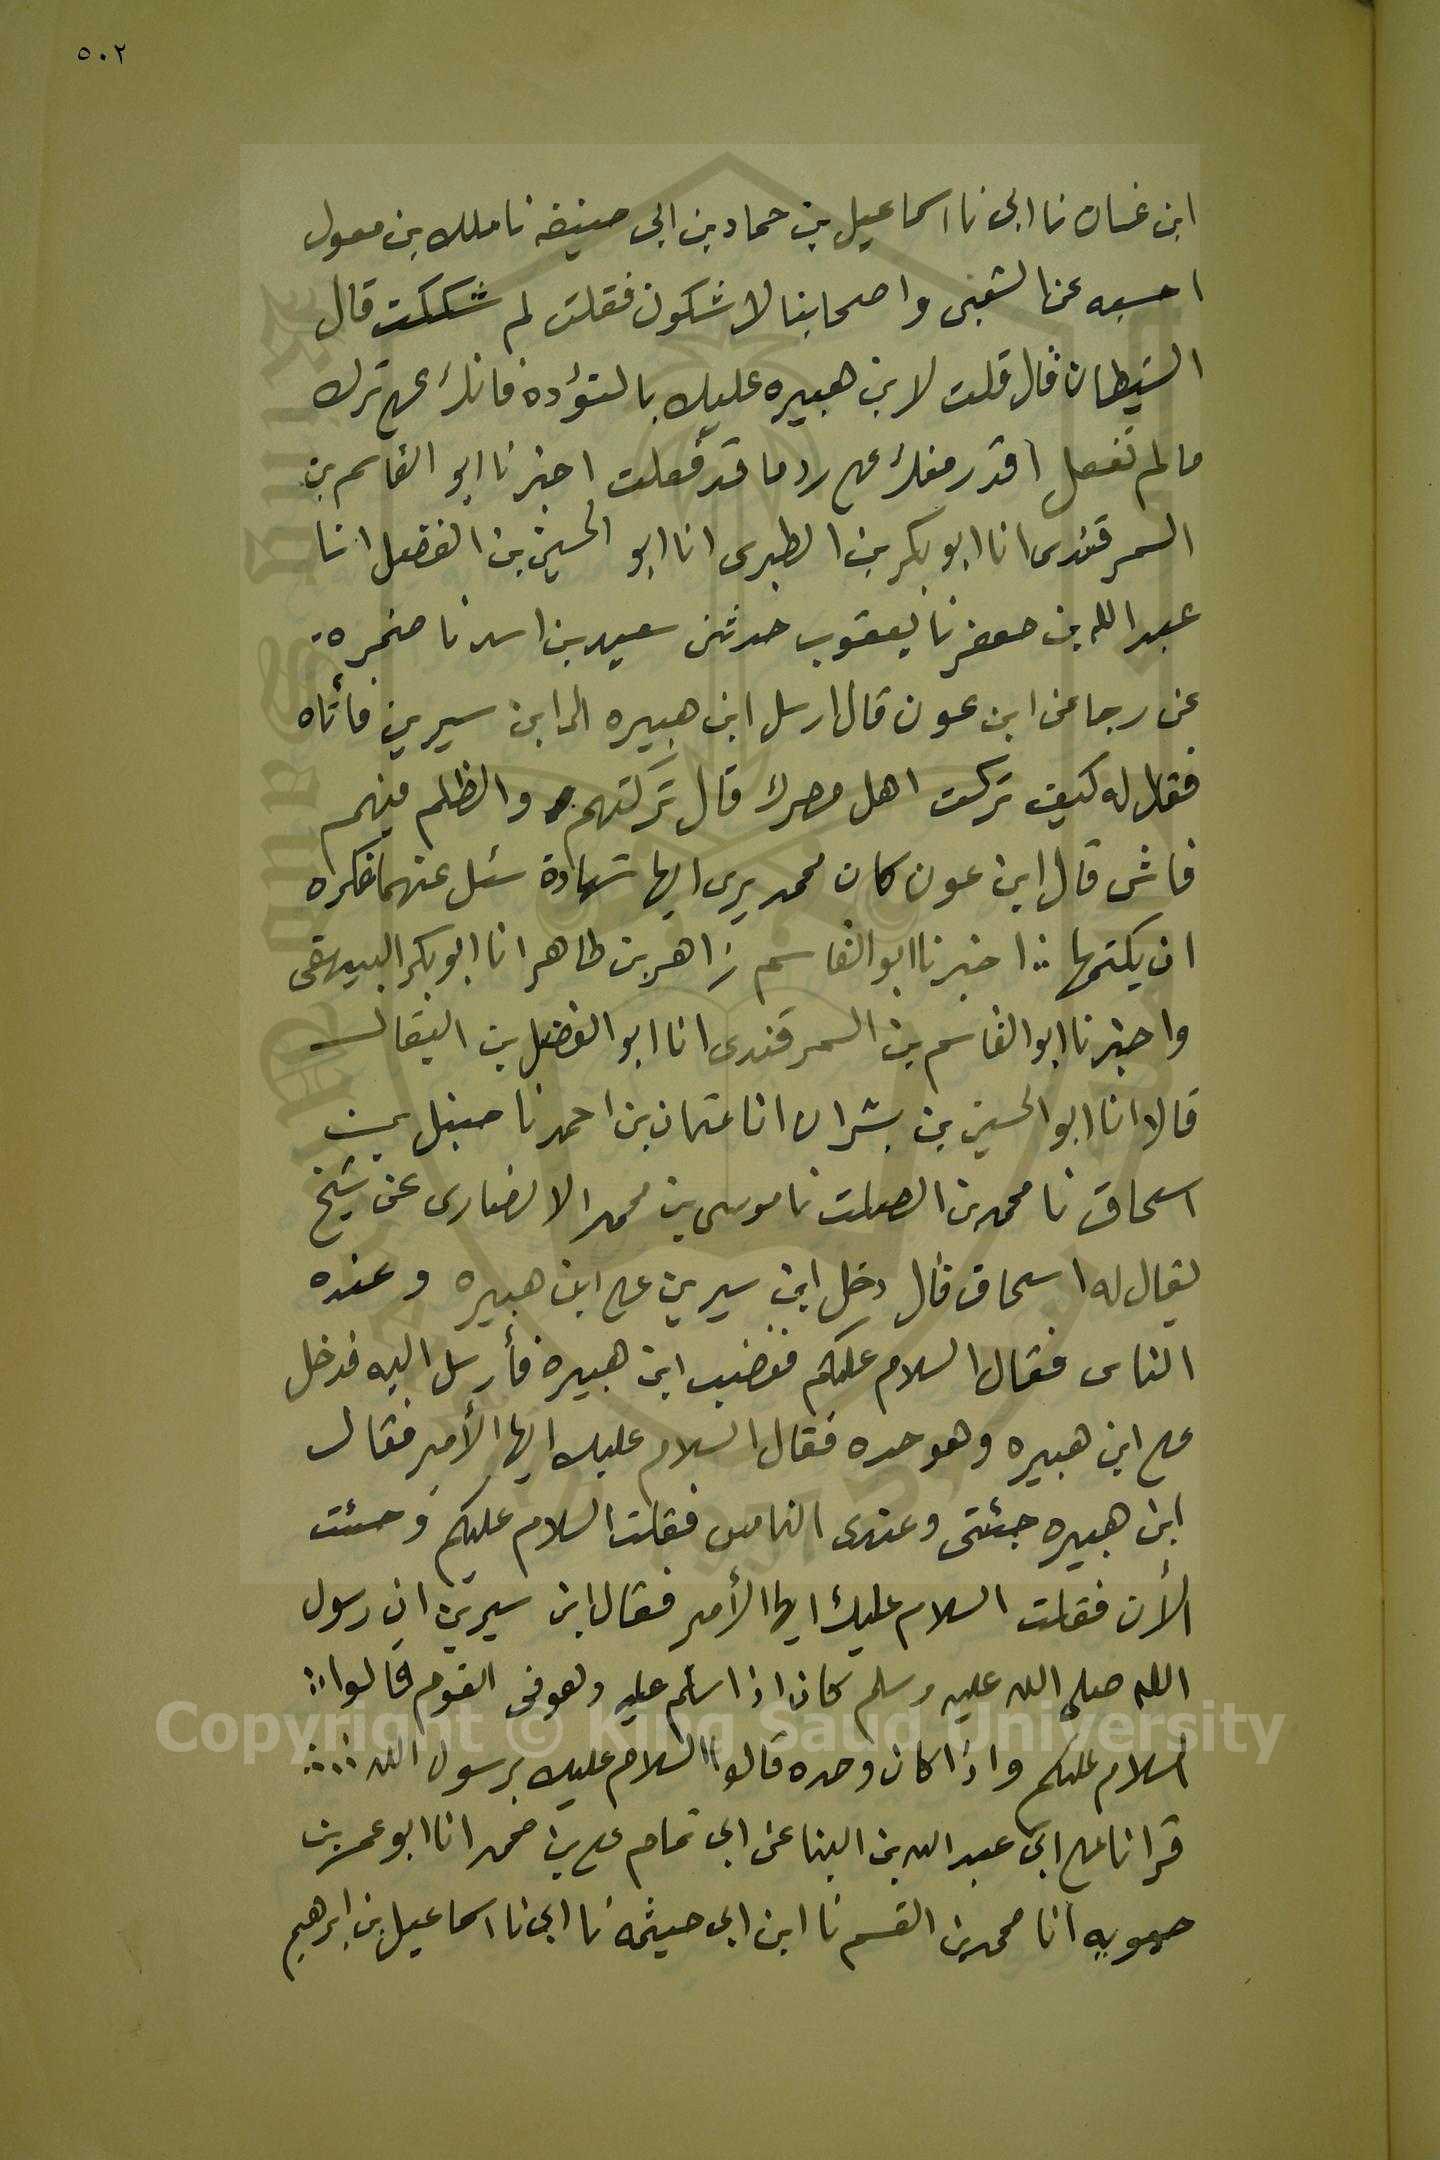 ٥٠٢
ابن غسان نا ابى نا اسماعيل بن حماد بن ابى حنيفه نا ملك بن معول
احسبه عن الشعبى واصحابنا لا شكون فقلت لم شككت قال
الشيطان قال قلت لابن هبيره عليك بالتؤدة فانك على ترك
مالم تفعل اقدر منك على رد ما قد فعلت اخبرنا ابو القاسم بن
السمرقندى انا ابو بكر بن الطبرى انا ابو الحسين بن الفضل انا
عبد الله بن جعفر نا يعقوب حدثنى سعيد بن اسد نا ضمرة
عن رجا عن ابن عون قال ارسل ابن هبيره الى ابن سيرين فأتاه
فقال له كيف تركت اهل مصرك قال تركتهم والظلم فيهم
فاش قال ابن عون كان محمد يرى ايها شهادة سئل عنهما فكره
ان يكتمها اخبرنا ابو القاسم زاهر بن طاهر انا ابو بكر البيهقى
واخبرنا ابو القاسم بن السمرقندى انا ابو الفضل بن البقال
قالا انا ابو الحسين بن بشران انا عثمان بن احمد نا حنبل بن
اسحاق نا محمد بن الصلت نا موسى بن محمد الانصارى عن شيخ
يقال له اسحاق قال دخل ابن سيرين على ابن هبيره وعنده
الناس فقال السلام عليكم فغضب ابن هبيرة فأرسل اليه فدخل
على ابن هبيره وهو وحده فقال السلام عليك ايها الأمير فقال
ابن هبيره جئتى وعندى الناس فقلت السلام عليكم وجئت
الأن فقلت السلام عليك ايها الأمير فقال ابن سيرين ان رسول
الله صلى الله عليه وسلم كان اذا سلم عليه وهو فى القوم قالوا
السلام عليكم واذا كان وحده قالوا السلام عليك يرسول الله
قرانا على ابى عبد الله بن البنا عن ابى تمام على بن محمد انا ابو عمر بن
حيويه انا محمد بن القسم نا ابن ابى خيثمه نا ابى نا اسماعيل بن ابرهيم
Copyright © King Saud University